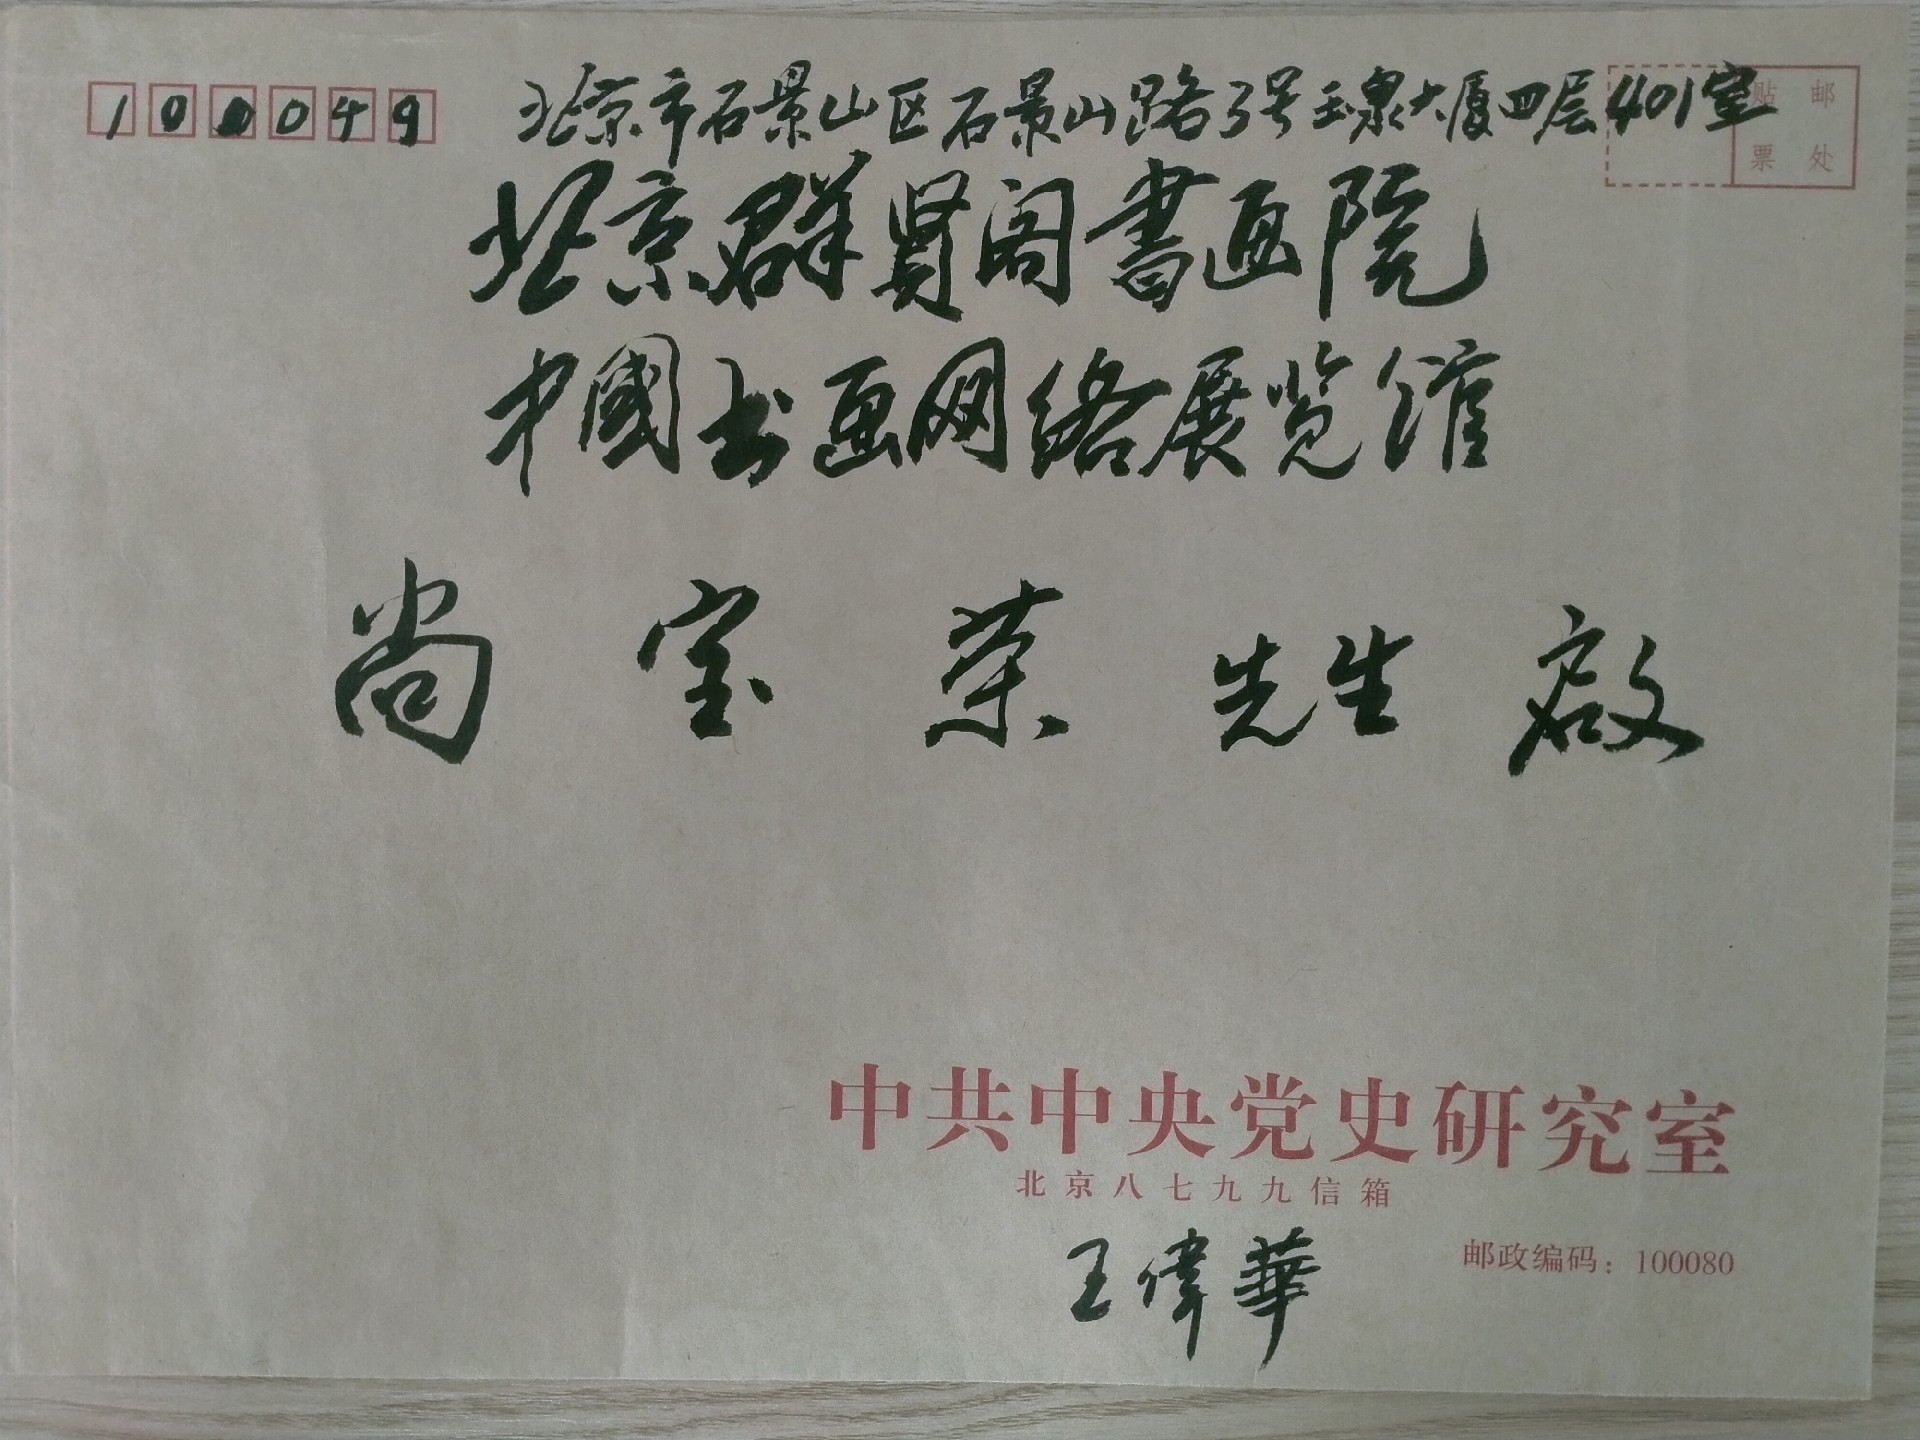 100049
北京市石景山区石景山路3号玉泉大厦四层401室
贴 邮
票 处
北京群贤阁書画院
中國书画网络展览馆
尚宝荣先生启
中共中央党史研究室
北京八七九九信箱
邮政编码：100080
王偉華